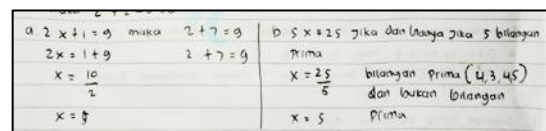 a. 2x+1=9 maka 2+7=9
2x = 1+9 2+7=9
x = 10/2
x = 5
b. 5x=25 jika dan hanya jika 5 bilangan
Prima
x = 25/5 bilangan Prima (4,3,45)
dan bukan bilangan
x = 5 Prima